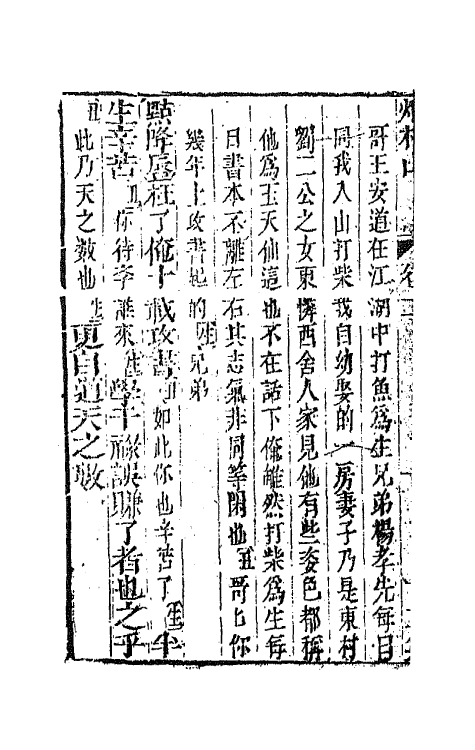 哥王安道在江湖中打魚爲生兄弟楊孝先每日
同我入山打柴我自幼娶的一房妻子乃是東村
劉二公之女東隣西舍人家見他有些姿色都稱
他爲玉天仙這也不在話下俺雖然打柴爲生每
日書本不離左右其志氣非同等閑也丑哥匕你
幾年上攻書起的生兄弟
點降唇枉了俺十載攻書丑如此你也辛苦了生半
生辛苦丑你待李誰來生學干祿誤賺了者也之乎
丑此乃天之数也生更自道天之数